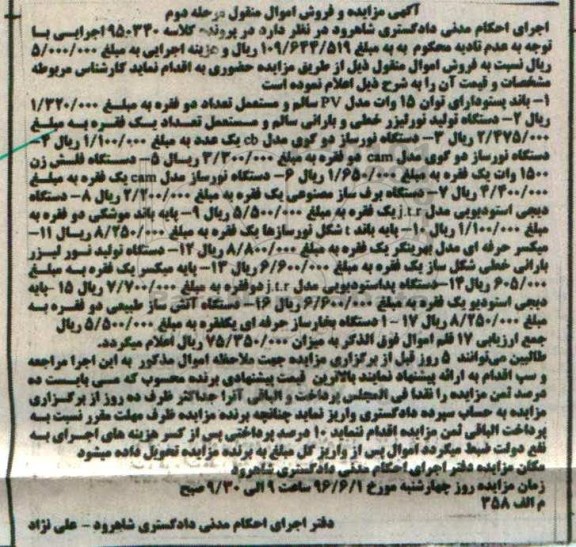 آگهی مزایده و فروش اموال منقول مرحله دوم
اجرای احکام مدنی دادگستری شاهرود در نظر دارد در پرونده کلاسه 950330 اجرایی با
توجه به عدم تادیه محکوم به به مبلغ 109/644/519 ریال و هزینه اجرایی به مبلغ 5/000/000
ریال نسبت به فروش اموال منقول ذیل از طریق مزایده حضوری به اقدام نماید کارشناس مربوطه
مشخصات و قیمت آن را به شرح ذیل اعلام نموده است
1- باند پستودارای توان 15 وات مدل PV سالم و مستعمل تعداد دو فقره به مبلغ 1/320/000
ریال 2- دستگاه تولید نورلیزر خطی و بارانی سالم و مستعمل تعداد یک فقره به مبلغ
2/475/000 ریال 3- دستگاه نورساز دو گوی مدل cb یک عدد به مبلغ 1/100/000 ریال 4-
دستگاه نورساز دو گوی مدل cam دو فقره به مبلغ 3/300/000 ریال 5- دستگاه فلش زن
1500 وات یک فقره به مبلغ 1/650/000 ریال 6- دستگاه نورساز مدل cam یک فقره به مبلغ
4/400/000 ریال 7- دستگاه برف ساز مصنوعی یک فقره به مبلغ 2/200/000 ریال 8- دستگاه
دیجی استودیویی مدل j.t.r یک فقره به مبلغ 5/500/000 ریال 9- پایه باند موشکی دو فقره به
مبلغ 1/100/000 ریال 10- پایه باند t شکل نورسازها یک فقره به مبلغ 8/250/000 ریال 11-
میکسر حرفه ای مدل بهرینگر یک فقره به مبلغ 8/800/000 ریال 12- دستگاه تولید نور لیزر
بارانی خطی شکل ساز یک فقره به مبلغ 6/600/000 ریال 13- پایه میکسر یک فقره به مبلغ
605/000 ریال 14- دستگاه پداستودیویی مدل j.t.r دوفقره به مبلغ 7/700/000 ریال 15- پایه
دیجی استودیو یک فقره به مبلغ 6/600/000 ریال 16- دستگاه آتش ساز طبیعی دو فقره به
مبلغ 8/250/000 ریال 17 - 1 دستگاه بخارساز حرفه ای یکفقره به مبلغ 5/500/000 ریال
جمع ارزیابی 17 قلم اموال فوق الذکر به میزان 75/350/000 ریال اعلام میگردد.
طالبین می‌توانند 5 روز قبل از برگزاری مزایده جهت ملاحظه اموال مذکور به این اجرا مراجعه
و سپ اقدام به ارائه پیشنهاد نمایند بالاترین قیمت پیشنهادی برنده محسوب که می بایست ده
درصد ثمن مزایده را نقدا فی المجلس پرداخت و الباقی آنرا حداکثر ظرف ده روز از برگزاری
مزایده به حساب سپرده دادگستری واریز نماید چنانچه برنده مزایده ظرف مهلت مقرر نسبت به
پرداخت الباقی ثمن مزایده اقدام ننماید 10 درصد پرداختی پس از کسر هزینه های اجرای به
نفع دولت ضبط میگردد اموال پس از واریز کل مبلغ به برنده مزایده تحویل داده میشود
مکان مزایده دفتر اجرای احکام مدنی دادگستری شاهرود
زمان مزایده روز چهارشنبه مورخ 96/6/1 ساعت 9 الی 9/30 صبح
م الف 358
دفتر اجرای احکام مدنی دادگستری شاهرود - علی نژاد